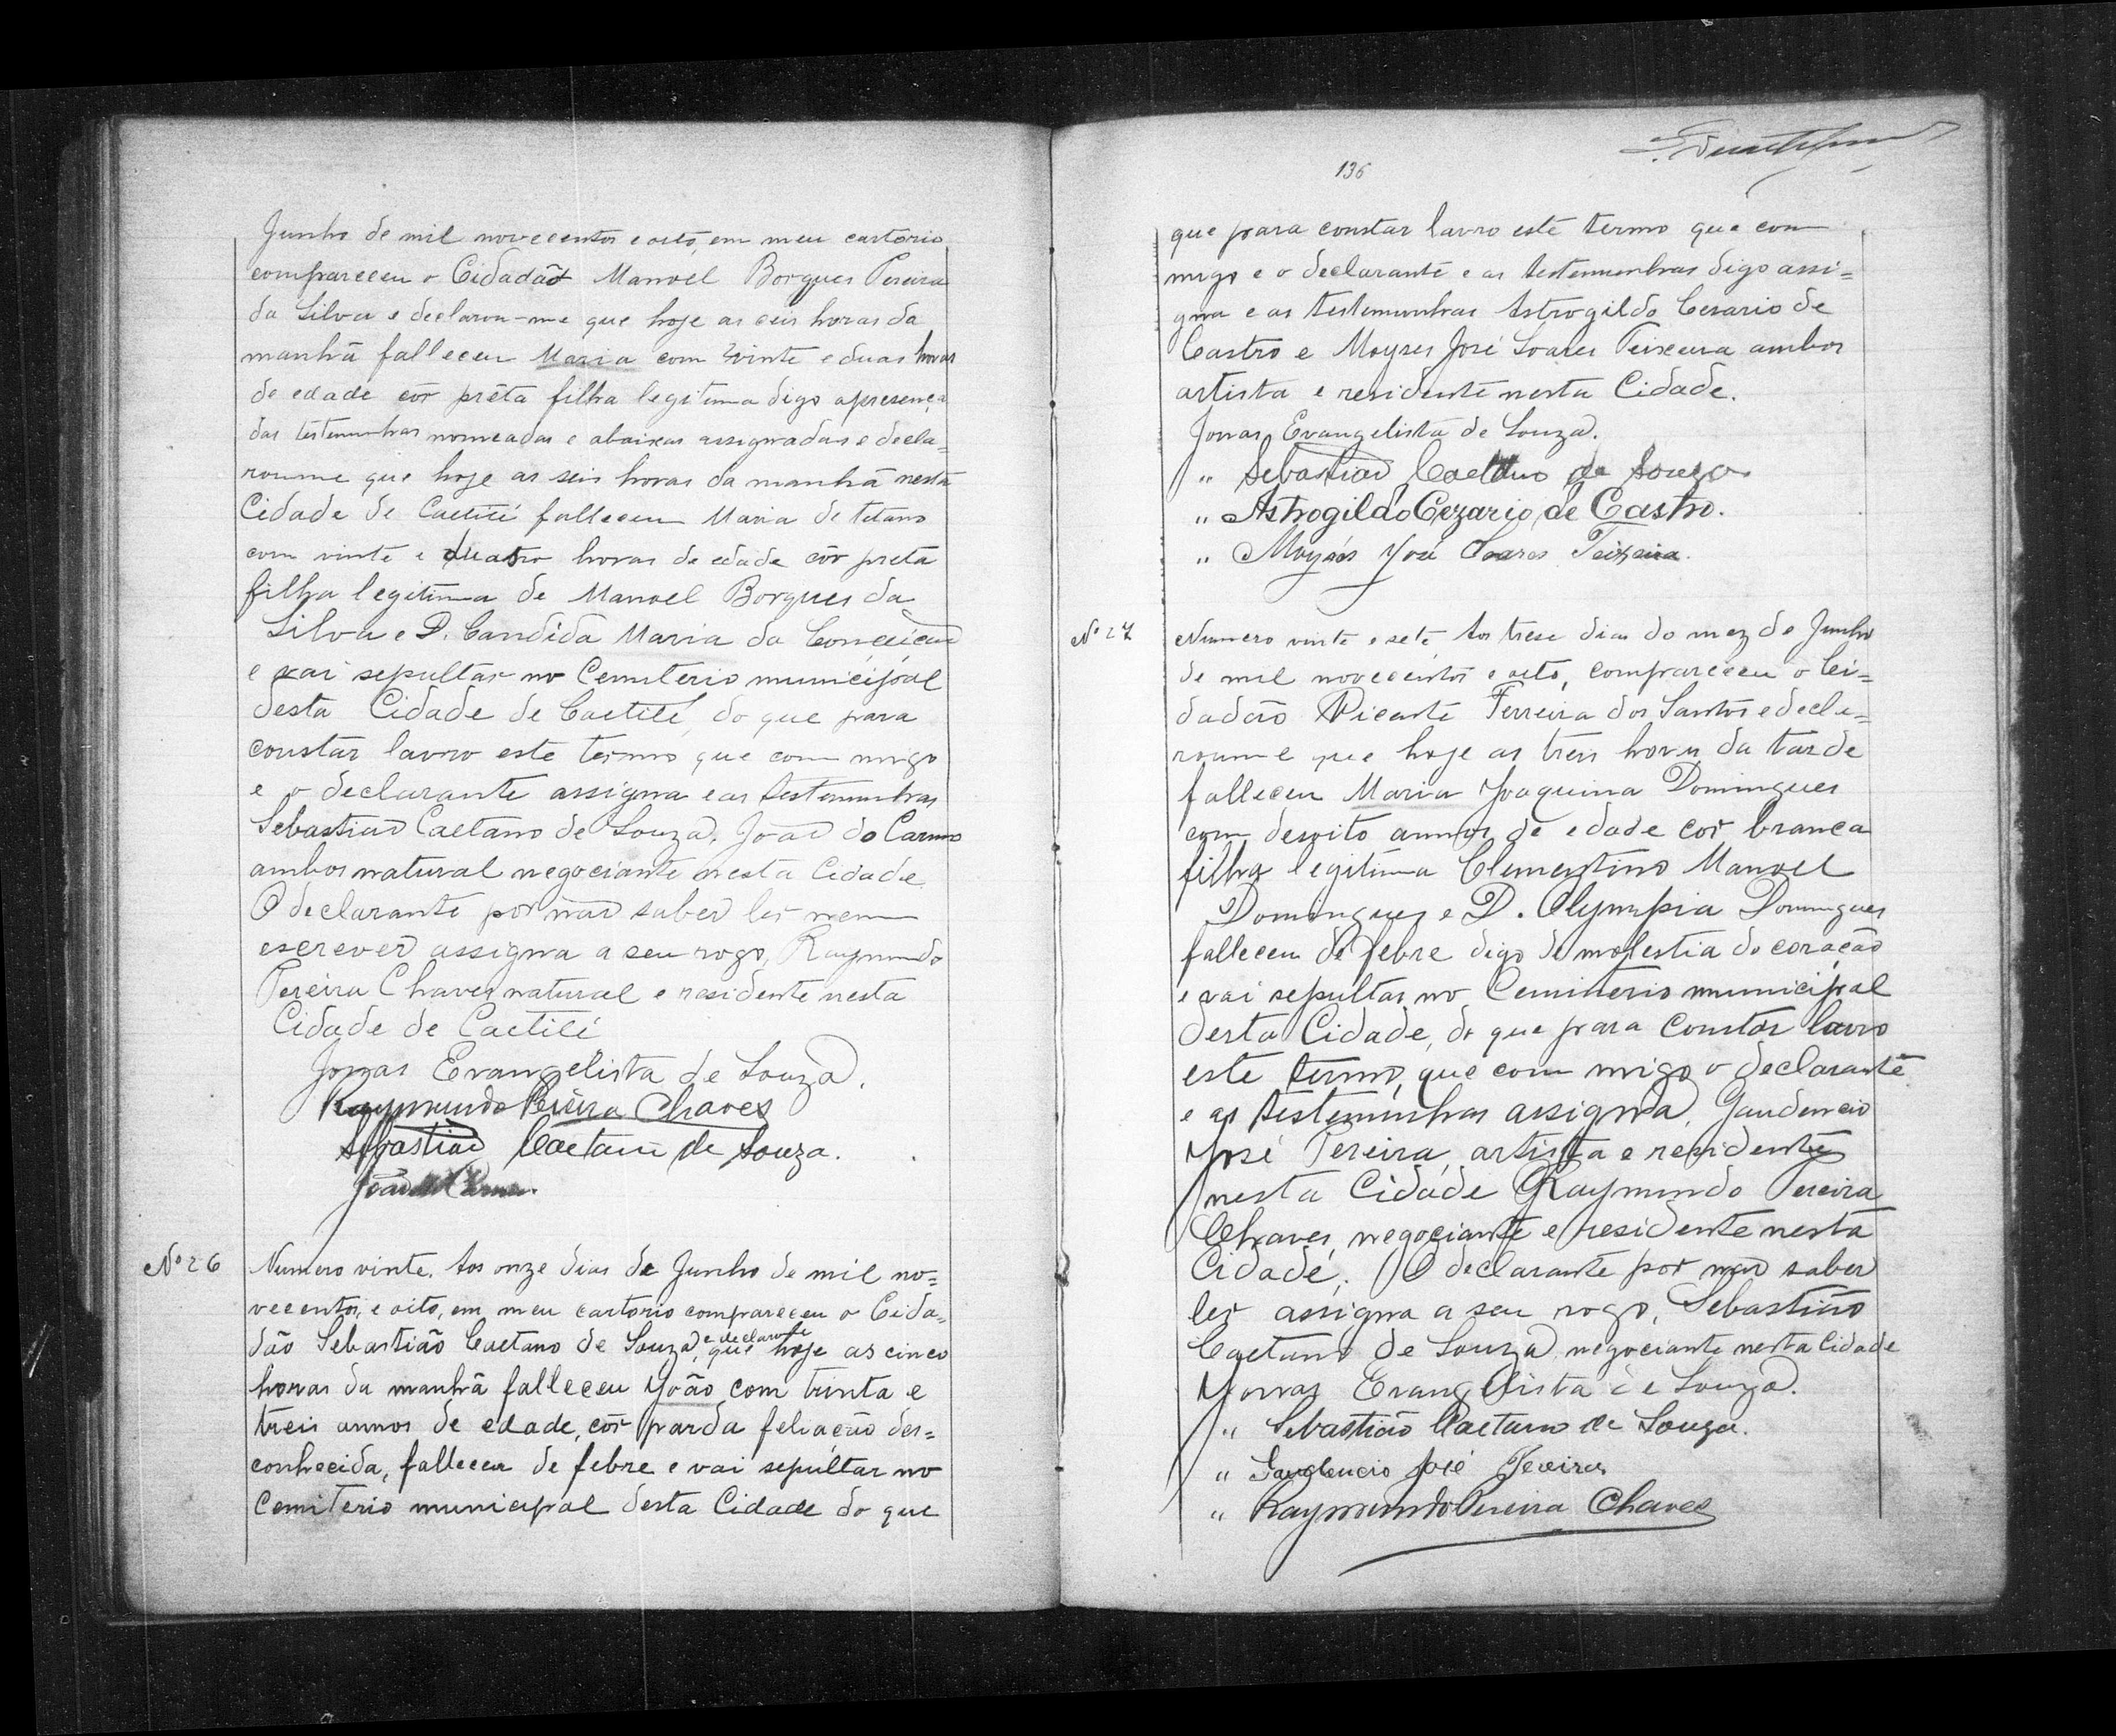 Junho de mil novecentos e oito, em meu cartorio
compareceu o Cidadão Manoel Borques Pereira
da Silva e declarou-me que hoje as ceis horas da
manhã falleceu Maria com vinte e duas horas
de edade côr prêta filha legitima digo a presença
das testemunhas nomeadas e abaixas assignadas e decla-
roume que hoje as seis horas da manhã nesta
Cidade de Caetité falleceu Maria de tetano
com vinte e quatro horas de edade côr preta
filha legitima de Manoel Borques da
Silva e D. Candida Maria da Conceição
e vai sepultar no Cemiterio municipal
desta Cidade de Caetité, do que para
constar lavro este termo que com migo
e o declarante assigna e as testemunhas
Sebastião Caetano de Souza, João do Carmo
ambos natural negociante nesta Cidade.
O declarante por não saber ler nem
escrever assigna a seu rogo, Raymundo
Pereira Chaves natural e residente nesta
Cidade de Caetité
Jonas Evangelista de Souza.
Raymundo Pereira Chaves
Sebastião Caetano de Souza.
João do Carmo.
Nº 26
Numero vinte. Aos onze dias de Junho de mil no=
vecentos, e oito, em meu cartorio compareceu o Cida=
dão Sebastião Caetano de Souza, e declarou que hoje as cinco
horas da manhã falleceu João com trinta e
treis annos de edade, côr parda feliação des=
conhecida, falleceu de febre e vai sepultar no
Cemiterio municipal desta Cidade do que
136
que para constar lavro este termo que com
migo e o declarante e as testemunhas digo assi=
gna e as testemunhas Astrogildo Cesario de
Castro e Moyses José Soares Teixeira ambos
artista e residente nesta Cidade.
Jonas Evangelista de Souza.
" Sebastião Caetano de Souza
" Astrogildo Cezario de Castro.
" Moysés José Soares Teixeira.
Nº 27
Numero vinte e sete, Aos trese dias do mez de Junho
de mil novecentos e oito, compareceu o Ci=
dadão Vicente Ferreira dos Santos e decla=
roume que hoje as treis horas da tarde
falleceu Maria Joaquina Domingues
com desoito annos de edade cor branca
filha legitima Clementino Manoel
Domingues e D. Olympia Domingues
falleceu de febre digo de molestia do coração
e vai sepultar no Cemiterio municipal
desta Cidade, do que para constar lavro
este termo, que com migo o declarante
e as testeminhas assigna, Gaudencio
José Pereira, artista e residente
nesta Cidade Raymundo Pereira
Chaves, negociante e residente nesta
Cidade, O declarante por não saber
ler assigna a seu rogo, Sebastião
Caetano de Souza negociante nesta Cidade
Jonas Evangelista de Souza.
" Sebastião Caetano de Souza.
" Gaudencio José Pereira
" Raymundo Pereira Chaves